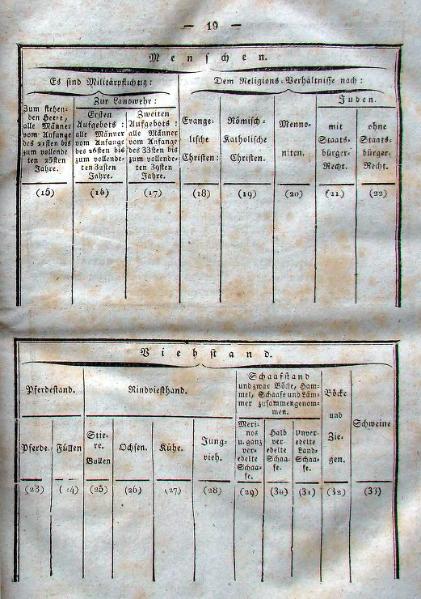 — 19 —
Menschen.
Es sind Militärpflichtig: Dem Religions-Verhältnisse nach:
Zur Landwehr: Juden.
Zum stehen-
den Heere,
alle Männer
vom Anfange
des 21sten bis
zum vollende
ten 25sten
Jahre.
Ersten
Aufgebots:
alle Männer
vom Anfange
des 26sten bis
zum vollende-
ten 32sten
Jahre.
Zweiten
Aufgebots:
alle Männer
vom Anfange
des 33sten bis
zum vollende-
ten 39sten
Jahre.
Evange-
lische
Christen:
Römisch-
Katholische
Christen.
Menno-
niten.
mit
Staats-
bürger-
Recht.
ohne
Staats-
bürger-
Recht.
(15) (16) (17) (18) (19) (20) (21) (22)
Viehstand.
Pferdestand. Rindviehstand.
Schaafstand
und zwar Böcke, Ham-
mel, Schaafe und Läm-
mer zusammengenom-
men.
Böcke
und
Zie-
gen.
Schweine
Pferde. Füllen
Stie-
re.
Bullen
Ochsen. Kühe.
Jung-
vieh.
Meri-
nos
u. ganz
ver-
edelte
Schaa-
fe.
Halb
ver-
edelte
Schaa-
fe.
Unver-
edelte
Land-
Schaa-
fe.
(23) (24) (25) (26) (27) (28) (29) (30) (31) (32) (33)